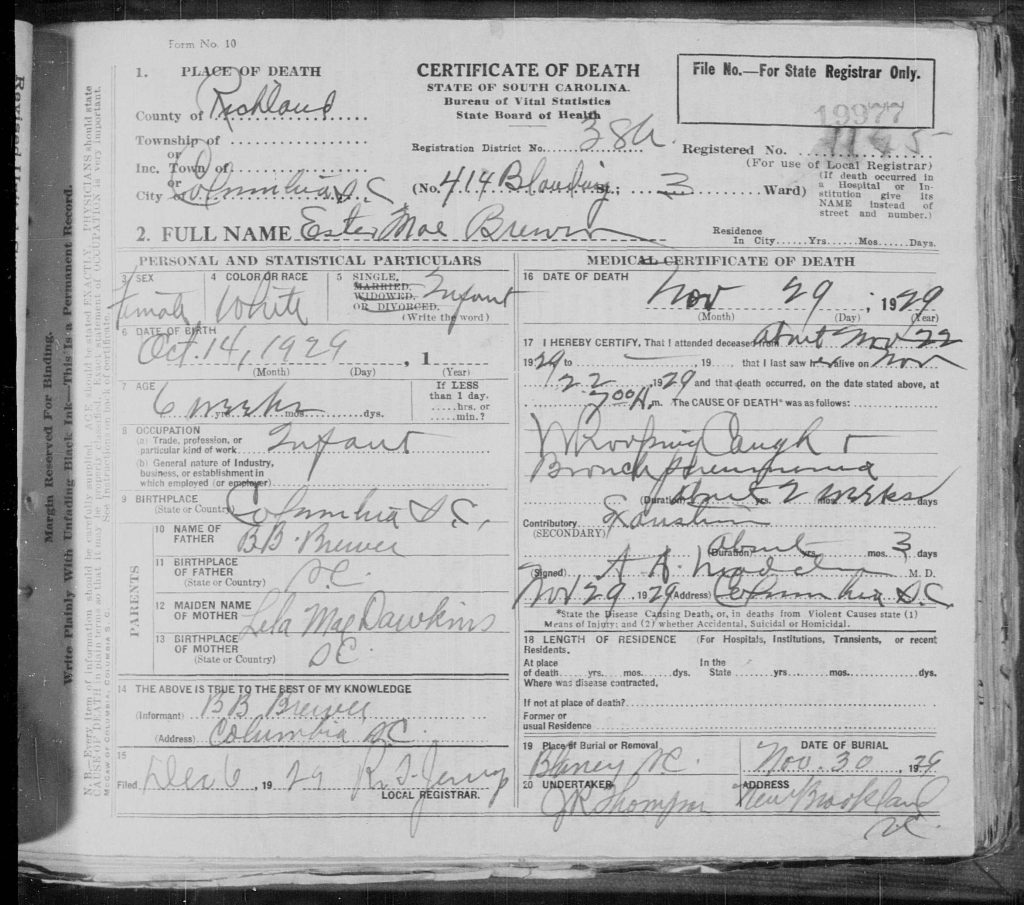 Form No. 10
1. PLACE OF DEATH
County of Richland
Township of
or
Inc. Town of
or
City of Columbia S.C.
CERTIFICATE OF DEATH
STATE OF SOUTH CAROLINA.
Bureau of Vital Statistics
State Board of Health
Registration District No. 38a
(No. 414 Blanding; 3 Ward)
File No.—For State Registrar Only.
19977
Registered No.
(For use of Local Registrar)
(If death occurred in
a Hospital or In-
stitution give its
NAME instead of
street and number.)
2. FULL NAME Ester Mae Brewer
Residence
In City Yrs. Mos. Days.
PERSONAL AND STATISTICAL PARTICULARS
3 SEX
Female
4 COLOR OR RACE
White
5 SINGLE,
MARRIED,
WIDOWED,
OR DIVORCED.
Infant
(Write the word)
6 DATE OF BIRTH
Oct. 14, 1929, 1
(Month) (Day) (Year)
7 AGE
6 weeks yrs. mos. ds.
If LESS
than 1 day.
hrs. or
min.?
8 OCCUPATION
(a) Trade, profession, or
particular kind of work Infant
(b) General nature of Industry,
business, or establishment in
which employed (or employer)
9 BIRTHPLACE
(State or Country) Columbia S.C.
PARENTS
10 NAME OF
FATHER B B. Brewer
11 BIRTHPLACE
OF FATHER
(State or Country) S.C.
12 MAIDEN NAME
OF MOTHER Lela Mae Dawkins
13 BIRTHPLACE
OF MOTHER
(State or Country) S.C.
14 THE ABOVE IS TRUE TO THE BEST OF MY KNOWLEDGE
(Informant) B B Brewer
(Address) Columbia S.C.
15
Filed Dec 6, 1929
LOCAL REGISTRAR.
MEDICAL CERTIFICATE OF DEATH
16 DATE OF DEATH
Nov 29, 1929
(Month) (Day) (Year)
17 I HEREBY CERTIFY, That I attended deceased from about Nov 22
1929 to 19 that I last saw her alive on Nov
22 1929 and that death occurred, on the date stated above, at
m. The CAUSE OF DEATH* was as follows:
Whooping Cough +
Bronch pneumonia
(Duration) about yrs. 2 weeks days
Contributory
(SECONDARY)
(Duration) about yrs. mos. 3 days
(Signed) M. D.
Nov 29 1929 (Address) Columbia S.C.
*State the Disease Causing Death, or, in deaths from Violent Causes state (1)
Means of Injury; and (2) whether Accidental, Suicidal or Homicidal.
18 LENGTH OF RESIDENCE (For Hospitals, Institutions, Transients, or recent
Residents.
At place In the
of death yrs. mos. days. State yrs. mos. days.
Where was disease contracted,
If not at place of death?
Former or
usual Residence
19 Place of Burial or Removal
Blaney S.C.
DATE OF BURIAL
Nov. 30 1929
20 UNDERTAKER
J R Thompson
ADDRESS
New Brookland
S.C.
Margin Reserved For Binding.
Write Plainly With Unfading Black Ink—This Is a Permanent Record.